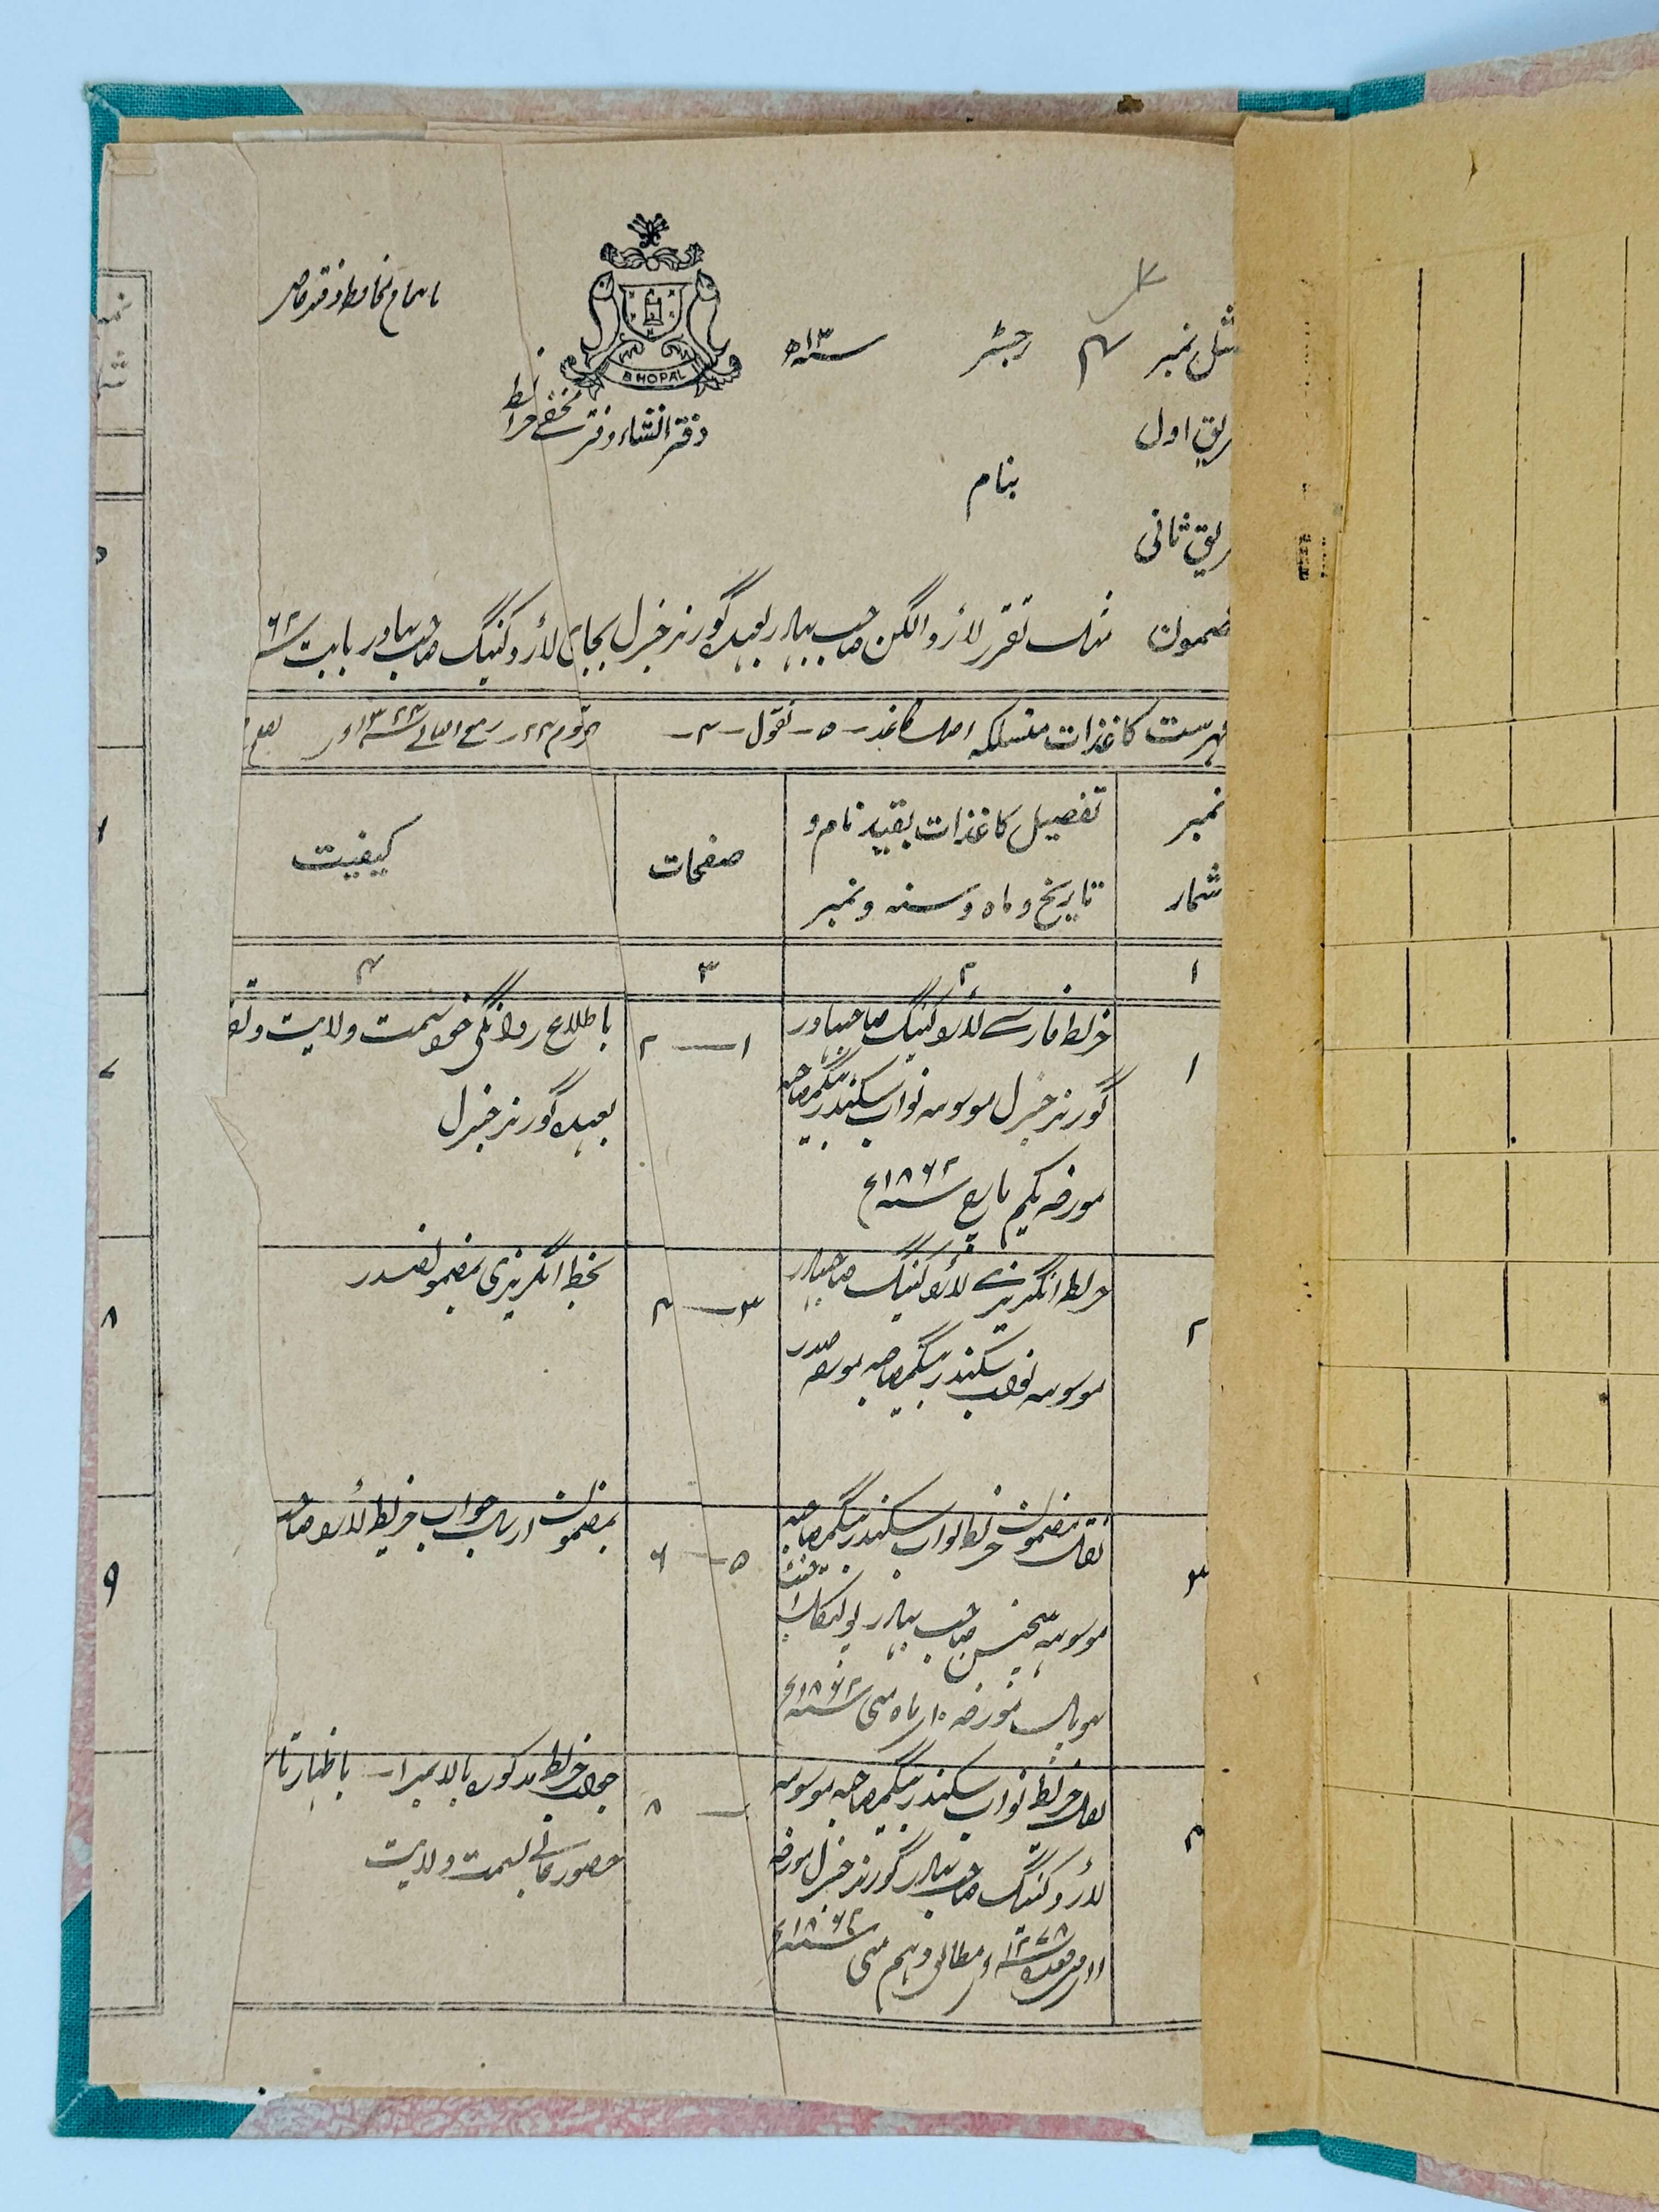 مثل نمبر ۴ رجسٹر سنہ ۱۳ھ
BHOPAL
دفتر انشاء دفتر خرائط
فریق اول
بنام
فریق ثانی
مضمون مثل تقرر لارڈ الگن صاحب بہادر بعہدہ گورنر جنرل بجای لارڈ کننگ صاحب بہادر بابت سنہ ۶۲
فہرست کاغذات منسلکہ اصل کاغذ - ۵ - نقول - ۴ -
نمبر شمار
تفصیل کاغذات بقید نام و تاریخ و ماہ و سنہ و نمبر
صفحات
کیفیت
۱ ۲ ۳ ۴
۱
خریطہ فارسی لارڈ کننگ صاحب بہادر
گورنر جنرل موسومہ نواب سکندر بیگم صاحبہ
مورخہ یکم مارچ سنہ ۱۸۶۲ع
۱ — ۲
باطلاع روانگی خود بسمت ولایت و تقرر
بعہدہ گورنر جنرل
۲
خریطہ انگریزی لارڈ کننگ صاحب بہادر
موسومہ نواب سکندر بیگم صاحبہ مورخہ صدر
۳ — ۴
بخط انگریزی بمضمون صدر
۳
نقل مضمون خریطہ نواب سکندر بیگم صاحبہ
موسومہ صاحب بہادر پولیٹکل ایجنٹ
بھوپال مورخہ ۱۰ ماہ مئی سنہ ۱۸۶۲ع
۵ — ۶
بمضمون ارسال جواب خریطہ لارڈ صاحب
۴
نقل خریطہ نواب سکندر بیگم صاحبہ موسومہ
لارڈ کننگ صاحب بہادر گورنر جنرل مورخہ
سنہ ۱۲۷۸ مطابق دہم مئی سنہ ۱۸۶۲ع
— ۸
جواب خریطہ مذکورہ بالا نمبر ۱ - باظہار
بسمت ولایت
۸
۹